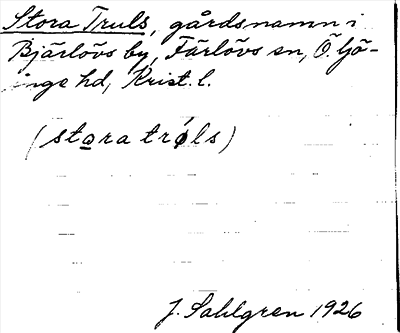 Stora Truls, gårdsnamn i
Bjärlövs by, Färlövs sn, Ö. Gö-
inge hd, Krist. l.
(stora tróls)
J. Sahlgren 1926